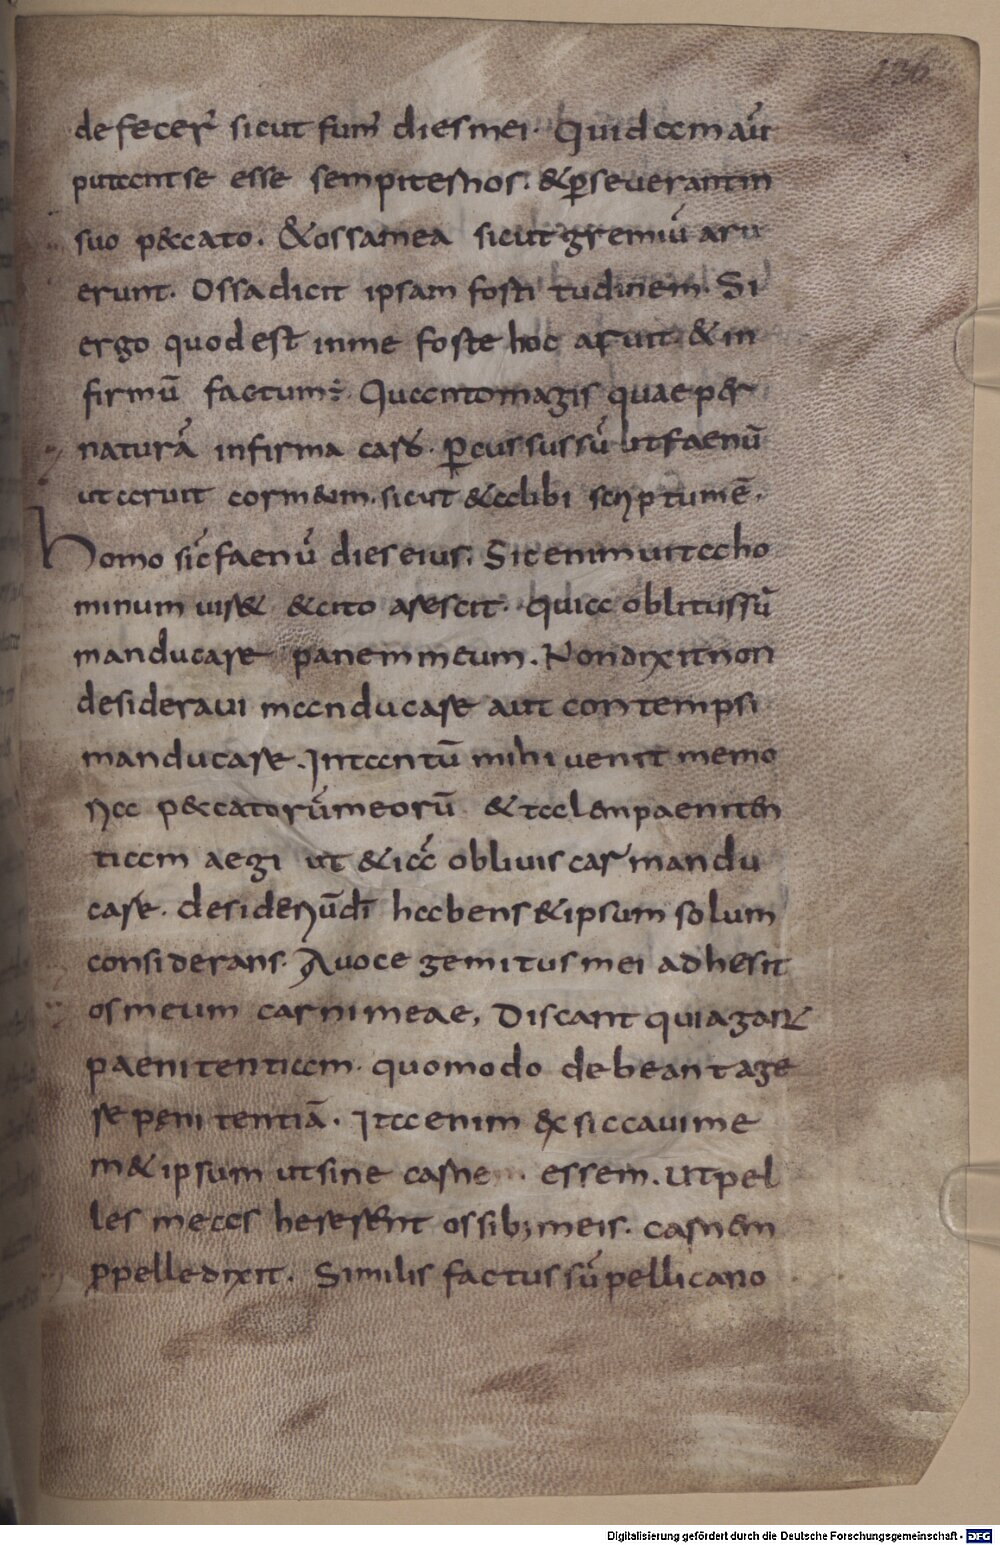 136
defecer̄ sicut fum̄ dies mei. Quidam aūt
putant se esse sempiternos. & ꝑseuerant in
suo p&cato. & ossa mea sicut gremiū aru
erunt. Ossa dicit ipsam forti tudinem. Si
ergo quod est in me forte hoc aruit & in
firmū factum ÷. Quanto magis quae per
naturā infirma caro. Percussus sū ut faenū
ut aruit cor meum. sicut & alibi scriptum ē.
Homo sic̄ faenū dies eius. Sic enim uita ho
minum uir& & cito arescit. quia oblitus sū
manducare panem meum. Non dixit non
desideraui manducare aut contempsi
manducare. In tantū mihi uenit memo
ria p&catorū meorū & talem paeniten
tiam aegi ut & iā obliuiscar mandu
care. desideriū dī habens & ipsum solum
considerans. A uoce gemitus mei adhesit
os meum carni meae, Discant qui agant
paenitentiam. quomodo debeant age
re penitentiā. Ita enim exsiccaui me
m& ipsum ut sine carne essem. Ut pel
les meas heserent ossib; meis. carnem
ꝓ pelle dixit. Similis factus sū pellicano
Digitalisierung gefördert durch die Deutsche Forschungsgemeinschaft - DFG